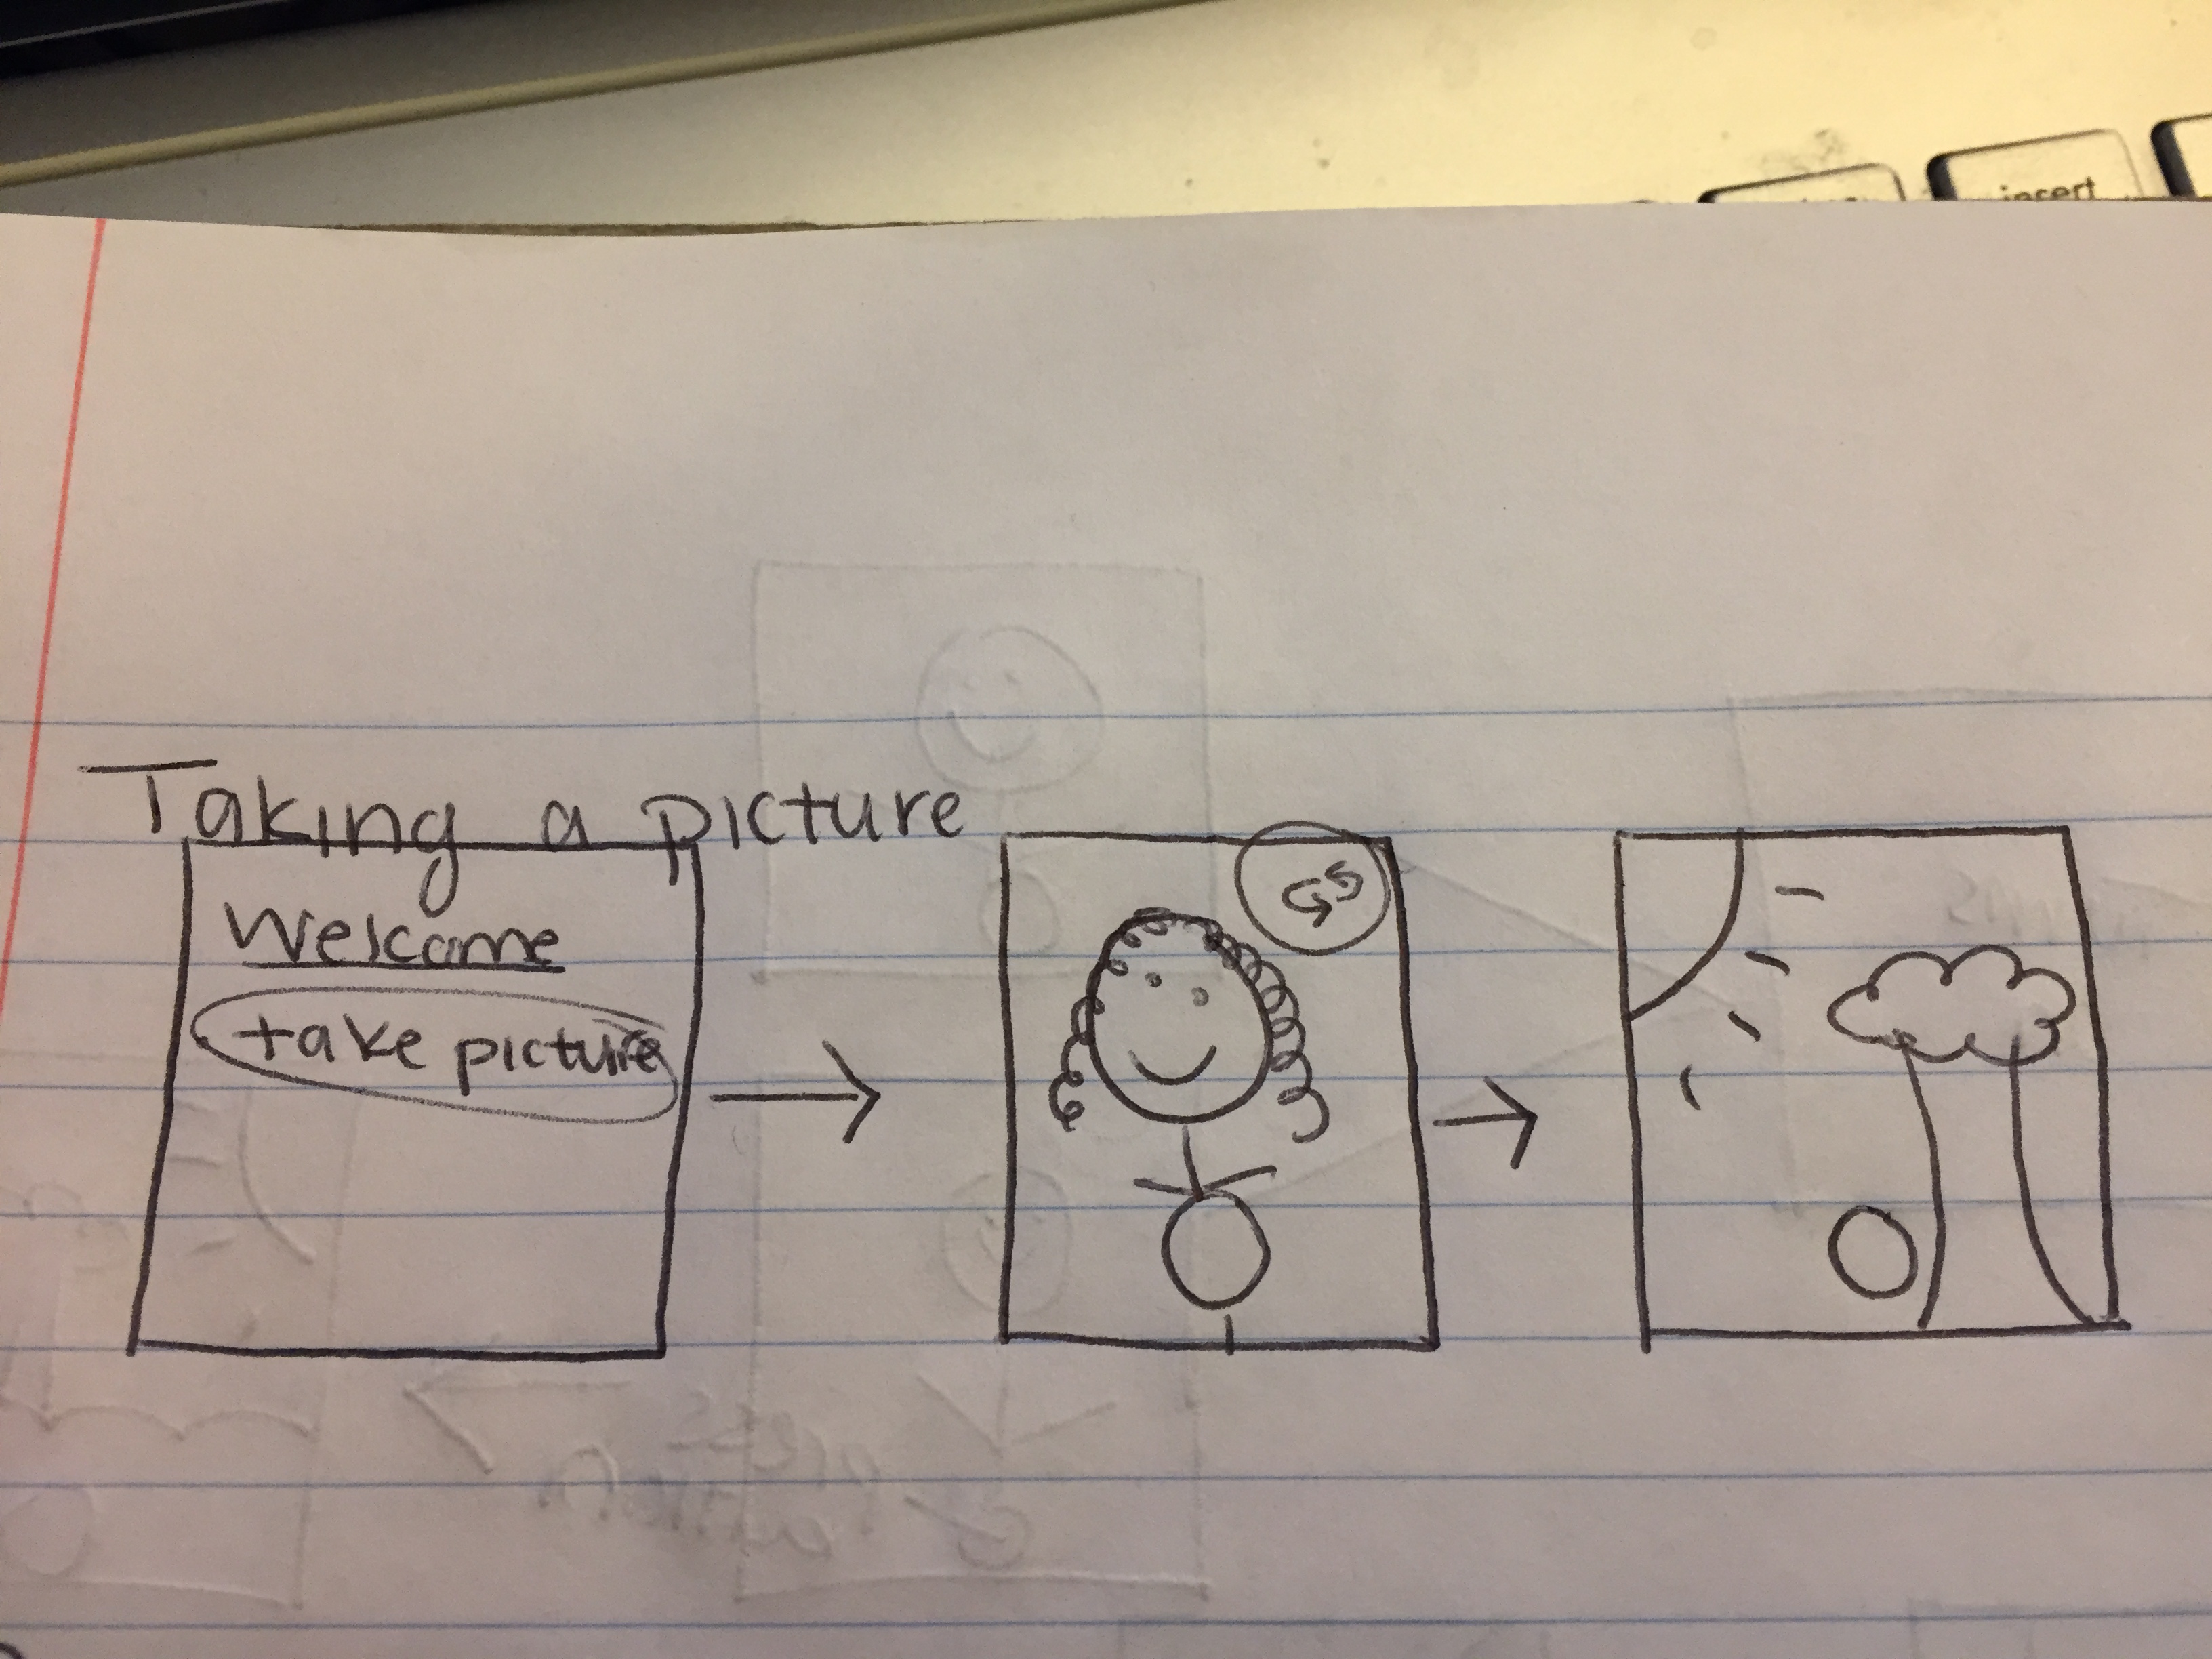 Taking a picture
Welcome
take picture
insert